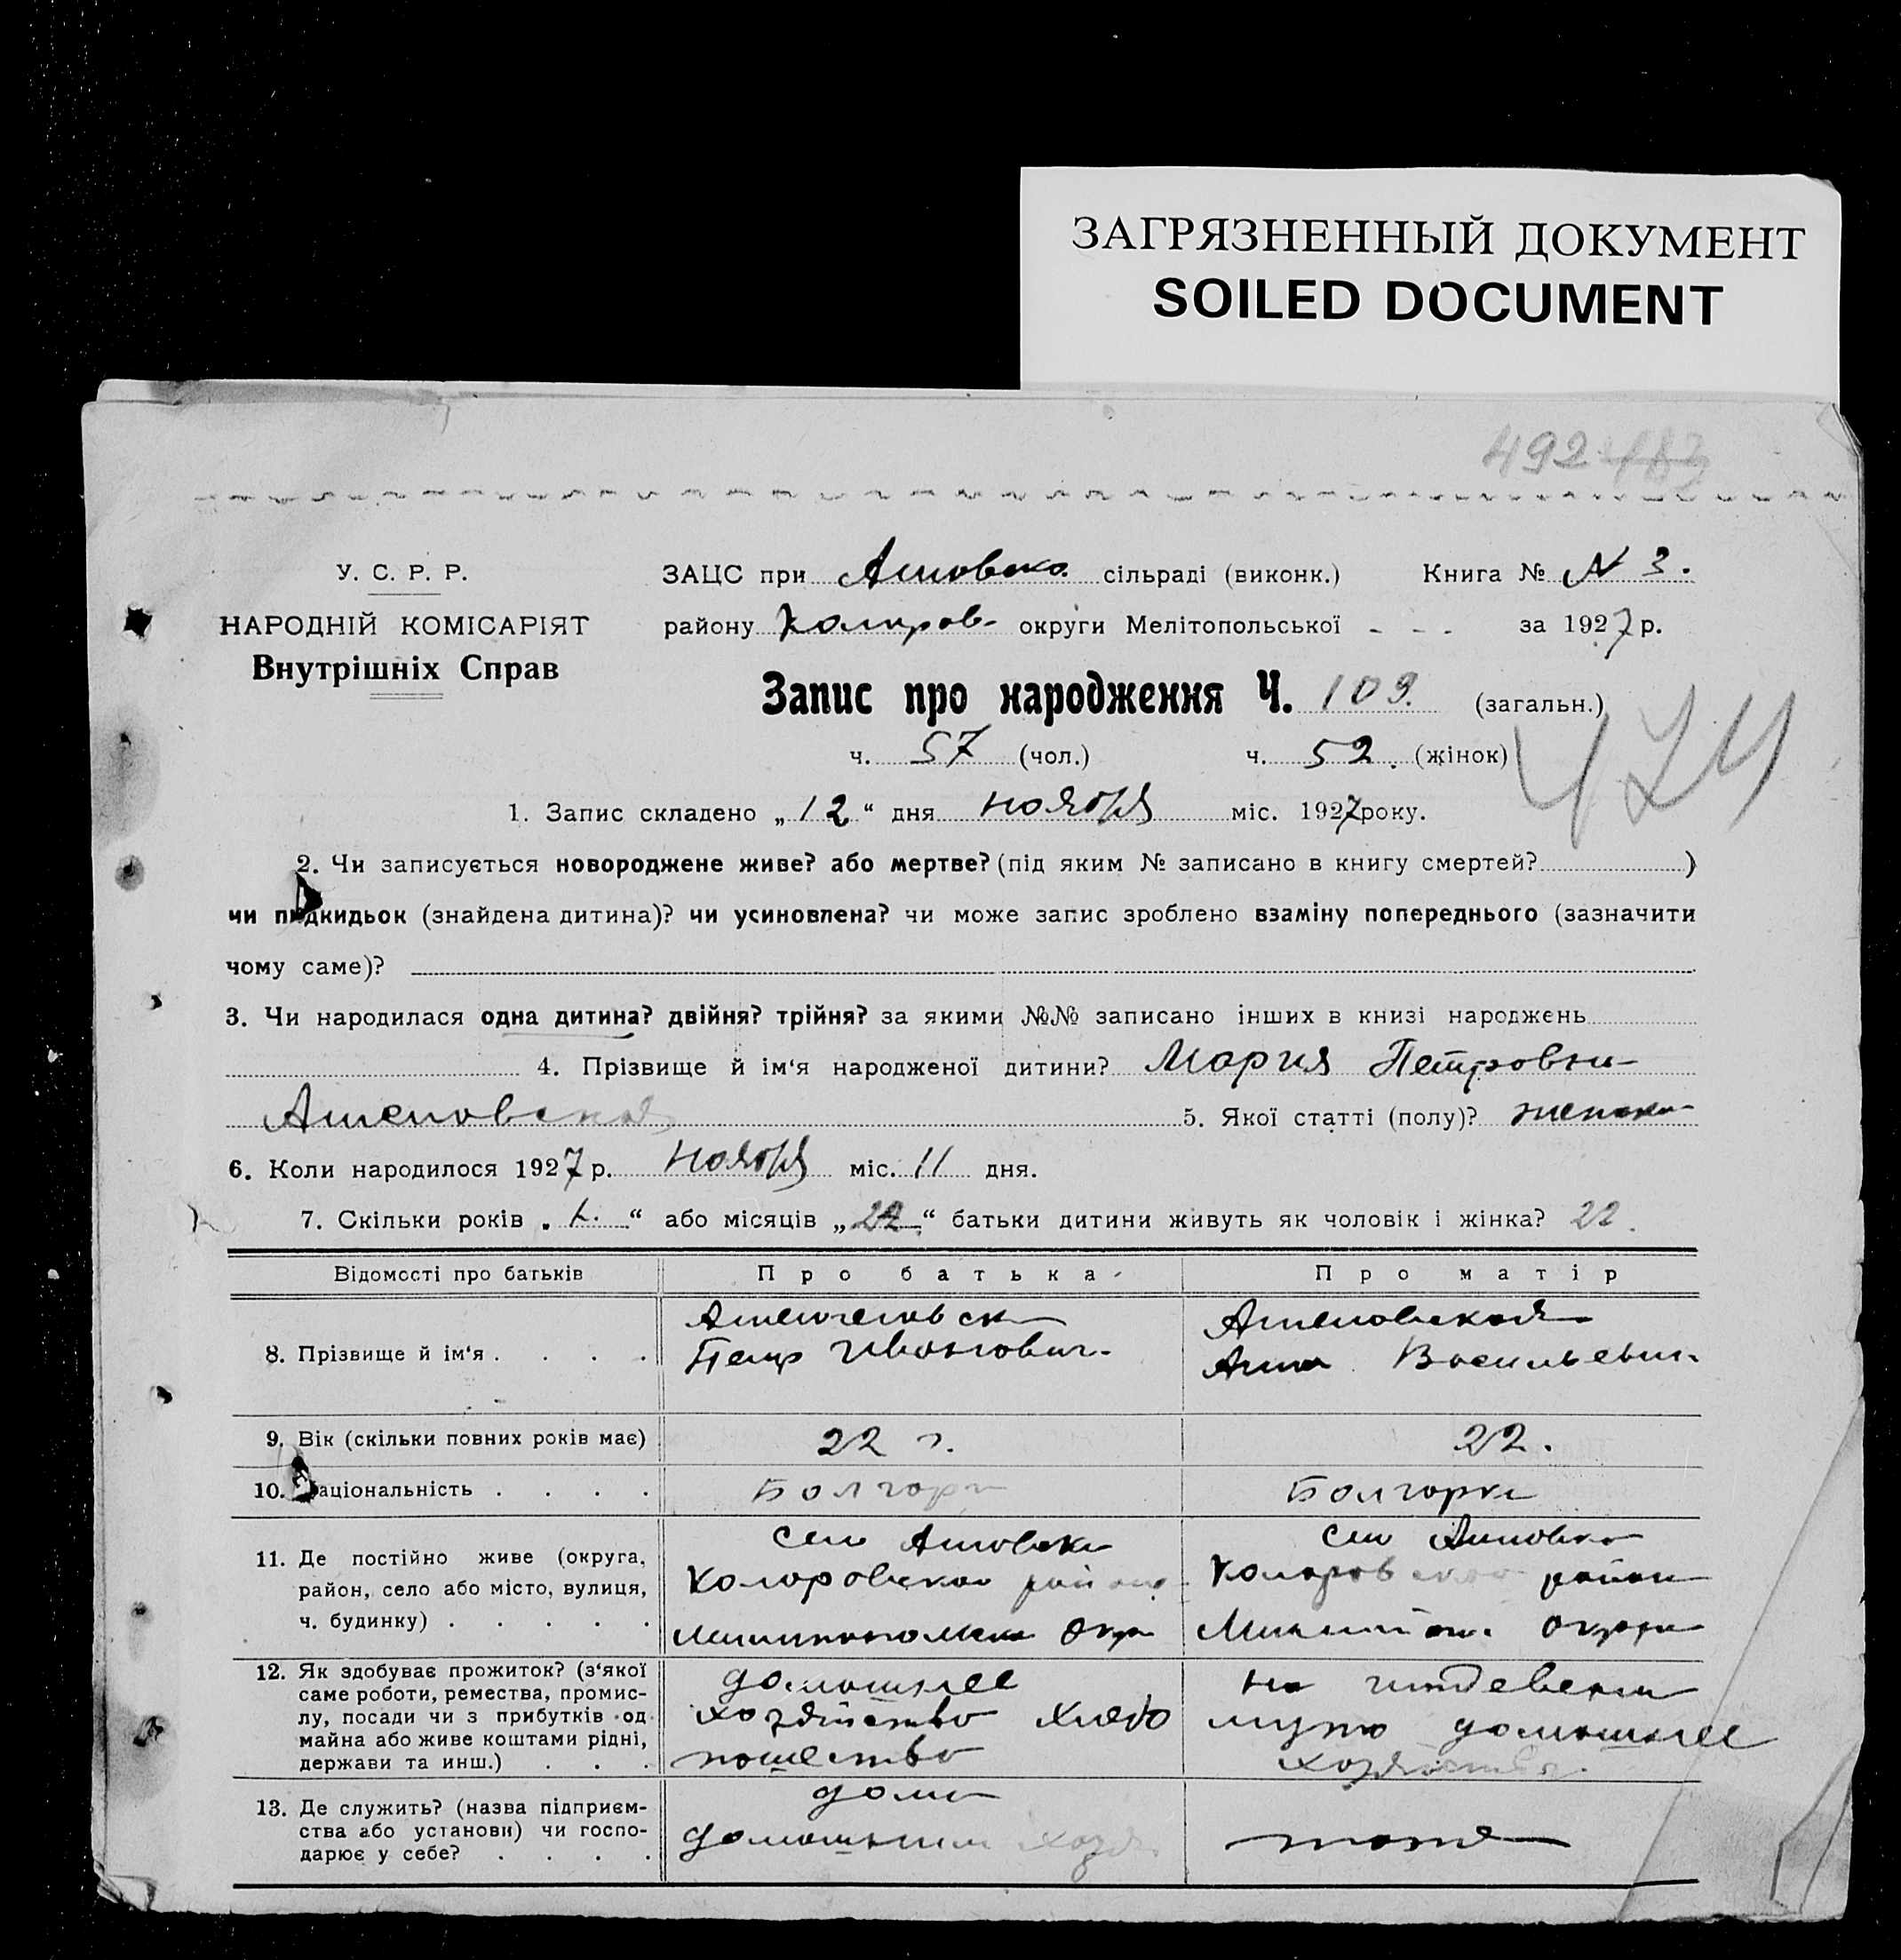 ЗАГРЯЗНЕННЫЙ ДОКУМЕНТ
SOILED DOCUMENT
492
У. С. Р. Р.
НАРОДНІЙ КОМІСАРІЯТ
Внутрішніх Справ
ЗАЦС при сільраді (виконк.) Книга № N 3.
району округи Мелітопольської - - - за 1927 р.
Запис про народження Ч. 109. (загальн.)
ч. 57 (чол.) ч. 52. (жінок)
474
1. Запис складено „12“ дня ноября міс. 1927 року.
2. Чи записується новороджене живе? або мертве? (під яким № записано в книгу смертей? )
чи підкидьок (знайдена дитина)? чи усиновлена? чи може запис зроблено взаміну попереднього (зазначити
чому саме)?
3. Чи народилася одна дитина? двійня? трійня? за якими №№ записано інших в книзі народжень
4. Прізвище й ім‘я народженої дитини? Мария Петровна
5. Якої статті (полу)? женска
6. Коли народилося 1927 р. ноября міс. 11 дня.
7. Скільки років „ “ або місяців „ “ батьки дитини живуть як чоловік і жінка? 22.
Відомості про батьків Про батька Про матір
8. Прізвище й ім‘я . . . . Петр Иванович Анна Васильевна
9. Вік (скільки повних років має) 22 г. 22.
10. Національність . . . . Болгари Болгарка
11. Де постійно живе (округа,
район, село або місто, вулиця,
ч. будинку) . . . . .
село село
Коларовского района Коларовского района
12. Як здобуває прожиток? (з‘якої
саме роботи, ремества, промис-
лу, посади чи з прибутків од
майна або живе коштами рідні,
держави та инш.) . . .
домашнее на иждевении
хозяйство хлебо мужа домашнее
пашество хозяйство
13. Де служить? (назва підприєм-
ства або установи) чи госпо-
дарює у себе? . . . .
дома
домашним хозя тоже